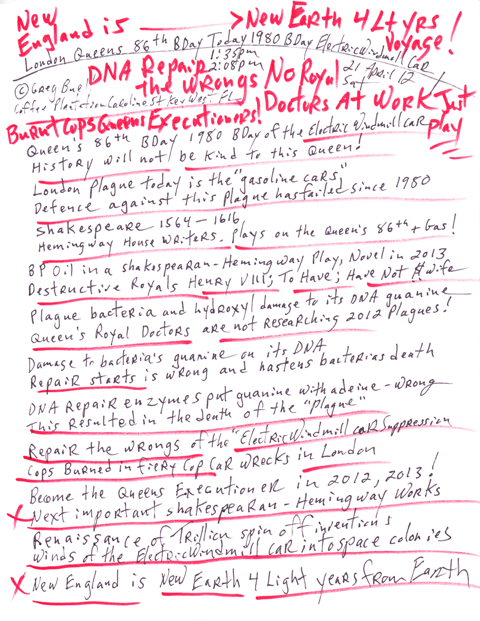 New
England is > New Earth 4 Lt yrs
Voyage!
London Queens 86th BDay Today 1980 BDay Electric Windmill Car
1:35pm
2:08pm
21 April 12
Sat
DNA Repair
the Wrongs No Royal
© Greg
Coffee Plantation Caroline St Key West FL
Doctors At Work Just
Play
Burnt Cops Queens Executioners!
Queen's 86th BDay 1980 BDay of the Electric Windmill Car
History will not be kind to this Queen!
London Plague today is the "gasoline cars"
Defence against this plague has failed since 1980
Shakespeare 1564 - 1616
Hemingway House Writers. Plays on the Queen's 86th + Gas!
BP Oil in a Shakespearan - Hemingway Play, Novel in 2013
Destructive Royals Henry VIII; To Have; Have Not A Wife
Plague bacteria and hydroxyl damage to its DNA guanine
Queen's Royal Doctors are not Researching 2012 Plagues!
Damage to bacteria's guanine on its DNA
Repair starts is wrong and hastens bacterias death
DNA Repair enzymes put guanine with adeine - wrong
This resulted in the death of the "Plague"
Repair the wrongs of the "Electric Windmill Car Suppression
Cops Burned in Fiery Cop Car Wrecks in London
Become the Queens Executioner in 2012, 2013!
X Next important Shakespearan - Hemingway Works
Renaissance of Trillion spin off inventions
Winds of the Electric Windmill Car into space colonies
X New England is New Earth 4 Light years from Earth